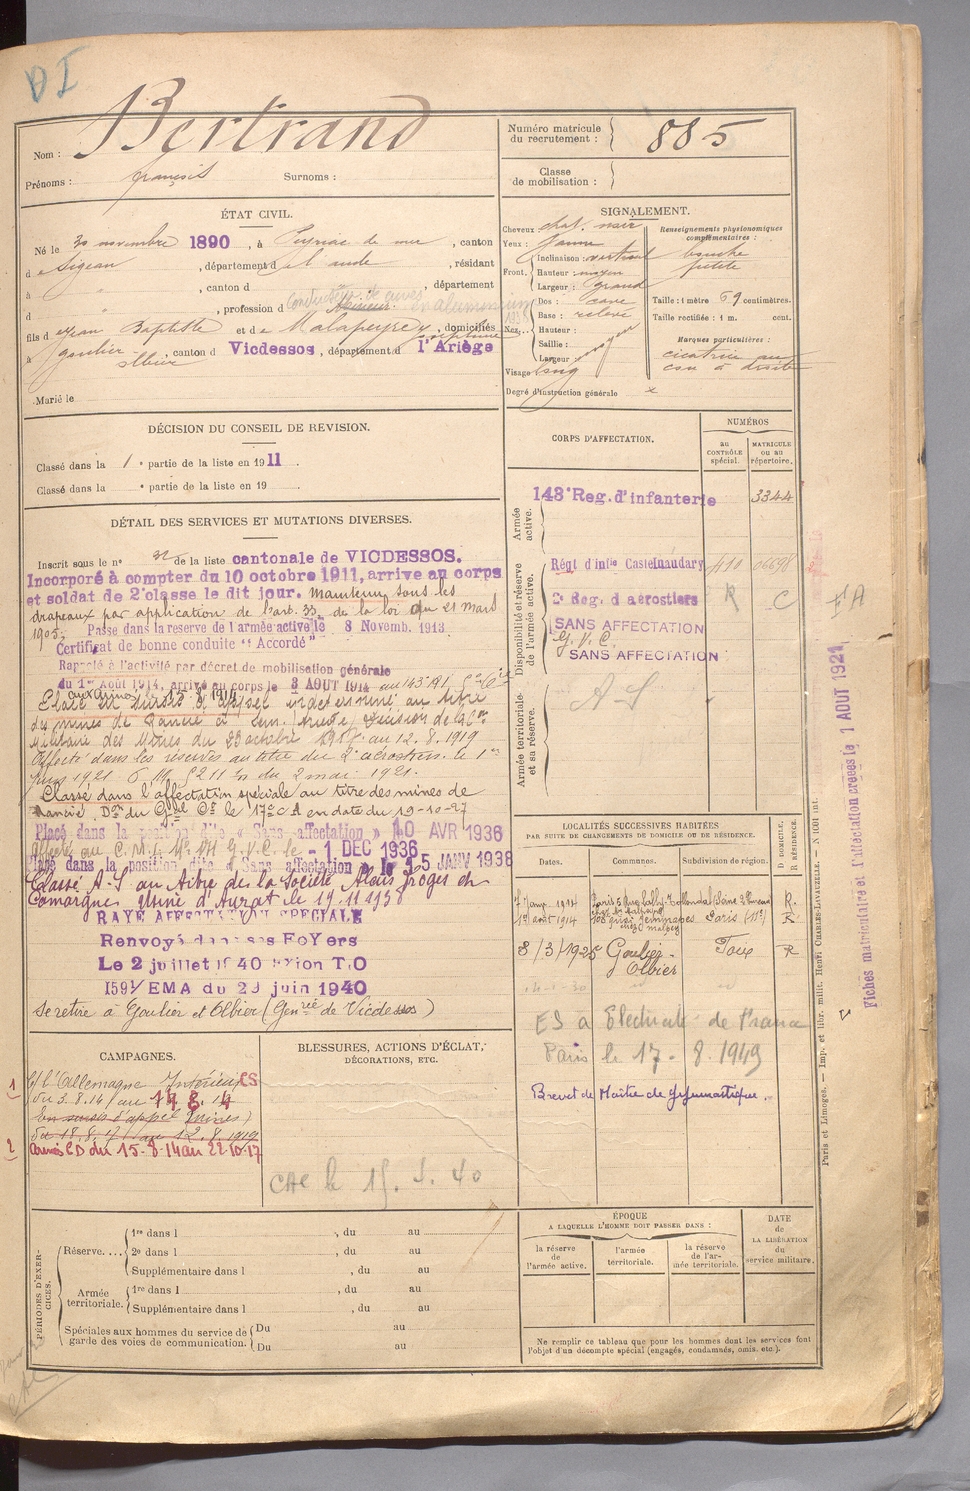 DI
Nom : Bertrand
Prénoms : françois Surnoms :
Numéro matricule du recrutement : 885
Classe de mobilisation :
ÉTAT CIVIL.
Né le 30 novembre 1890, à Peyriac de mer, canton
d e Sigean, département d e l'aude, résidant
à " , canton d , département
d , profession d conducteur de cuves en aluminium
fils d e Jean Baptiste et d e Malapeyre Joséphine, domiciliés
à goulier olbier, canton d Vicdessos, département d l'Ariège
Marié le
SIGNALEMENT.
Cheveux chat. noir
Yeux : Jaune
Front. Inclinaison : vertical
Hauteur : moyen
Largeur : grand
Nez. Dos : cave
Base : relevé
Hauteur :
Saillie :
Largeur :
Visage long
Renseignements physionomiques complémentaires :
bouche petite
Taille : 1 mètre 69 centimètres.
Taille rectifiée : 1 m. cent.
Marques particulières :
cicatrice au cou à droite
Degré d'instruction générale
DÉCISION DU CONSEIL DE REVISION.
Classé dans la 1e partie de la liste en 1911.
Classé dans la e partie de la liste en 19 .
DÉTAIL DES SERVICES ET MUTATIONS DIVERSES.
Inscrit sous le n° de la liste cantonale de VICDESSOS.
Incorporé à compter du 10 octobre 1911, arrive au corps
et soldat de 2e classe le dit jour. Maintenu sous les
drapeaux par application de l'art. 33 de la loi du 21 Mars
1905. Passé dans la réserve de l'armée active le 8 Novemb. 1913
Certificat de bonne conduite "Accordé"
Rappelé à l'activité par décret de mobilisation générale
du 1er Août 1914, arrivé au corps le 3 AOUT 1914
aux armées 15.8.1914
Placé en sursis d'appel indéterminé au titre
des mines de Rancié à
Militaire des Mines du 23 octobre 1917 au 12.8.1919
Affecté dans les réserves au titre du 2e aérostiers le 1er
Juin 1921 du 2 mai 1921.
Classé dans l'affectation spéciale au titre des mines de
Rancié. Don du Gal Ct le 17e C A en date du 19-10-27
Placé dans la position dite « Sans affectation » 10 AVR 1936
Affecté au G.V.C. le 1 DEC 1936
Placé dans la position dite « Sans affectation » le 15 JANV 1938
Classé A.S au titre de la Société Alais Froges et
Camargue Usine d'Auzat le 19.11.1938
RAYÉ AFFECTATION SPECIALE
Renvoyé dans ses FoYers
Le 2 juillet 1940
159/ EMA du 29 juin 1940
Se retire à Goulier et Olbier (Genrie de Vicdessos)
CORPS D'AFFECTATION.
NUMÉROS
au CONTRÔLE spécial.
MATRICULE ou au répertoire.
Armée active.
143e Reg. d'infanterie 3344
Disponibilité et réserve de l'armée active.
Régt d'infie Castelnaudary 410 06698
2e Reg. d aerostiers R C
SANS AFFECTATION
G.V.C.
SANS AFFECTATION
Armée territoriale et sa réserve.
A S
LOCALITÉS SUCCESSIVES HABITÉES
PAR SUITE DE CHANGEMENTS DE DOMICILE OU DE RÉSIDENCE.
D DOMICILE, R RÉSIDENCE.
Dates. Communes. Subdivision de région.
1er août 1914 quai Jemmapes Paris (11e) R.
8/3/1925 Goulier-Olbier Foix R
ES à Electricité de France
Paris le 17 - 8. 1949
Brevet de Maître de gymnastique.
CAMPAGNES.
1 C/ l'Allemagne Intérieur CS
du 3.8.14 au 14 8. 14
En sursis d'appel (mines)
du 18.8.17 au 12.8.1919
2 Armées CD du 15-8-14 au 22-10-17
BLESSURES, ACTIONS D'ÉCLAT, DÉCORATIONS, ETC.
CAL le 15. 4. 40
PÉRIODES D'EXERCICES.
Réserve.... 1re dans l , du au
2e dans l , du au
Supplémentaire dans l , du au
Armée territoriale. 1re dans l , du au
Supplémentaire dans l , du au
Spéciales aux hommes du service de garde des voies de communication. Du au
Du au
ÉPOQUE
A LAQUELLE L'HOMME DOIT PASSER DANS :
la réserve de l'armée active.
l'armée territoriale.
la réserve de l'armée territoriale.
DATE de LA LIBÉRATION du service militaire.
Ne remplir ce tableau que pour les hommes dont les services font
l'objet d'un décompte spécial (engagés, condamnés, omis. etc.).
Paris et Limoges. — Imp. et libr. milit. Henri CHARLES-LAVAUZELLE.
Fiches matriculaire et d'affectation créées le 1 AOUT 1921